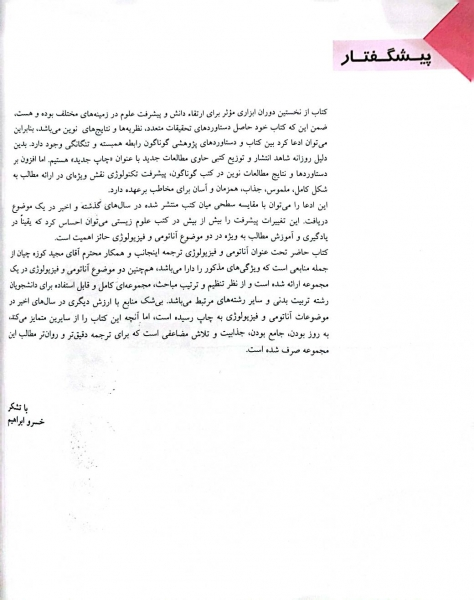 پیشگفتار
کتاب از نخستین دوران ابزاری مؤثر برای ارتقاء دانش و پیشرفت علوم در زمینه‌های مختلف بوده و هست،
ضمن این که کتاب خود حاصل دستاوردهای تحقیقات متعدد، نظریه‌ها و نتایج‌های نوین می‌باشد، بنابراین
می‌توان ادعا کرد بین کتاب و دستاوردهای پژوهشی گوناگون رابطه همبسته و تنگاتنگی وجود دارد. بدین
دلیل روزانه شاهد انتشار و توزیع کتبی حاوی مطالعات جدید با عنوان «چاپ جدید» هستیم. اما افزون بر
دستاوردها و نتایج مطالعات نوین در کتب گوناگون، پیشرفت تکنولوژی نقش ویژه‌ای در ارائه مطالب به
شکل کامل، ملموس، جذاب، همزمان و آسان برای مخاطب برعهده دارد.
این ادعا را می‌توان با مقایسه سطحی میان کتب منتشر شده در سال‌های گذشته و اخیر در یک موضوع
دریافت. این تغییرات پیشرفت را بیش از بیش در کتب علوم زیستی می‌توان احساس کرد که یقیناً در
یادگیری و آموزش مطالب به ویژه در دو موضوع آناتومی و فیزیولوژی حائز اهمیت است.
کتاب حاضر تحت عنوان آناتومی و فیزیولوژی ترجمه اینجانب و همکار محترم آقای مجید کوزه چیان از
جمله منابعی است که ویژگی‌های مذکور را دارا می‌باشد، هم‌چنین دو موضوع آناتومی و فیزیولوژی در یک
مجموعه ارائه شده است و از نظر تنظیم و ترتیب مباحث، مجموعه‌ای کامل و قابل استفاده برای دانشجویان
رشته تربیت بدنی و سایر رشته‌های مرتبط می‌باشد. بی‌شک منابع با ارزش دیگری در سال‌های اخیر در
موضوعات آناتومی و فیزیولوژی به چاپ رسیده است، اما آنچه این کتاب را از سایرین متمایز می‌کند،
به روز بودن، جامع بودن، جذابیت و تلاش مضاعفی است که برای ترجمه دقیق‌تر و روان‌تر مطالب این
مجموعه صرف شده است.
با تشکر
خسرو ابراهیم